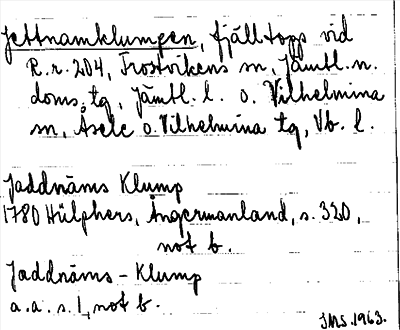 Jettnamklumpen, fjälltopp vid
R.r. 204, Frostvikens sn, Jämtl. n.
doms. tg, Jämtl. l. o. Vilhelmina
sn, Åsele o. Vilhelmina tg, Vb. l.
Jaddnäms Klump
1780 Hülphers, Ångermanland, s. 320,
not b.
Jaddnäms - Klump
a.a. s. 1, not b.
JMS. 1963.